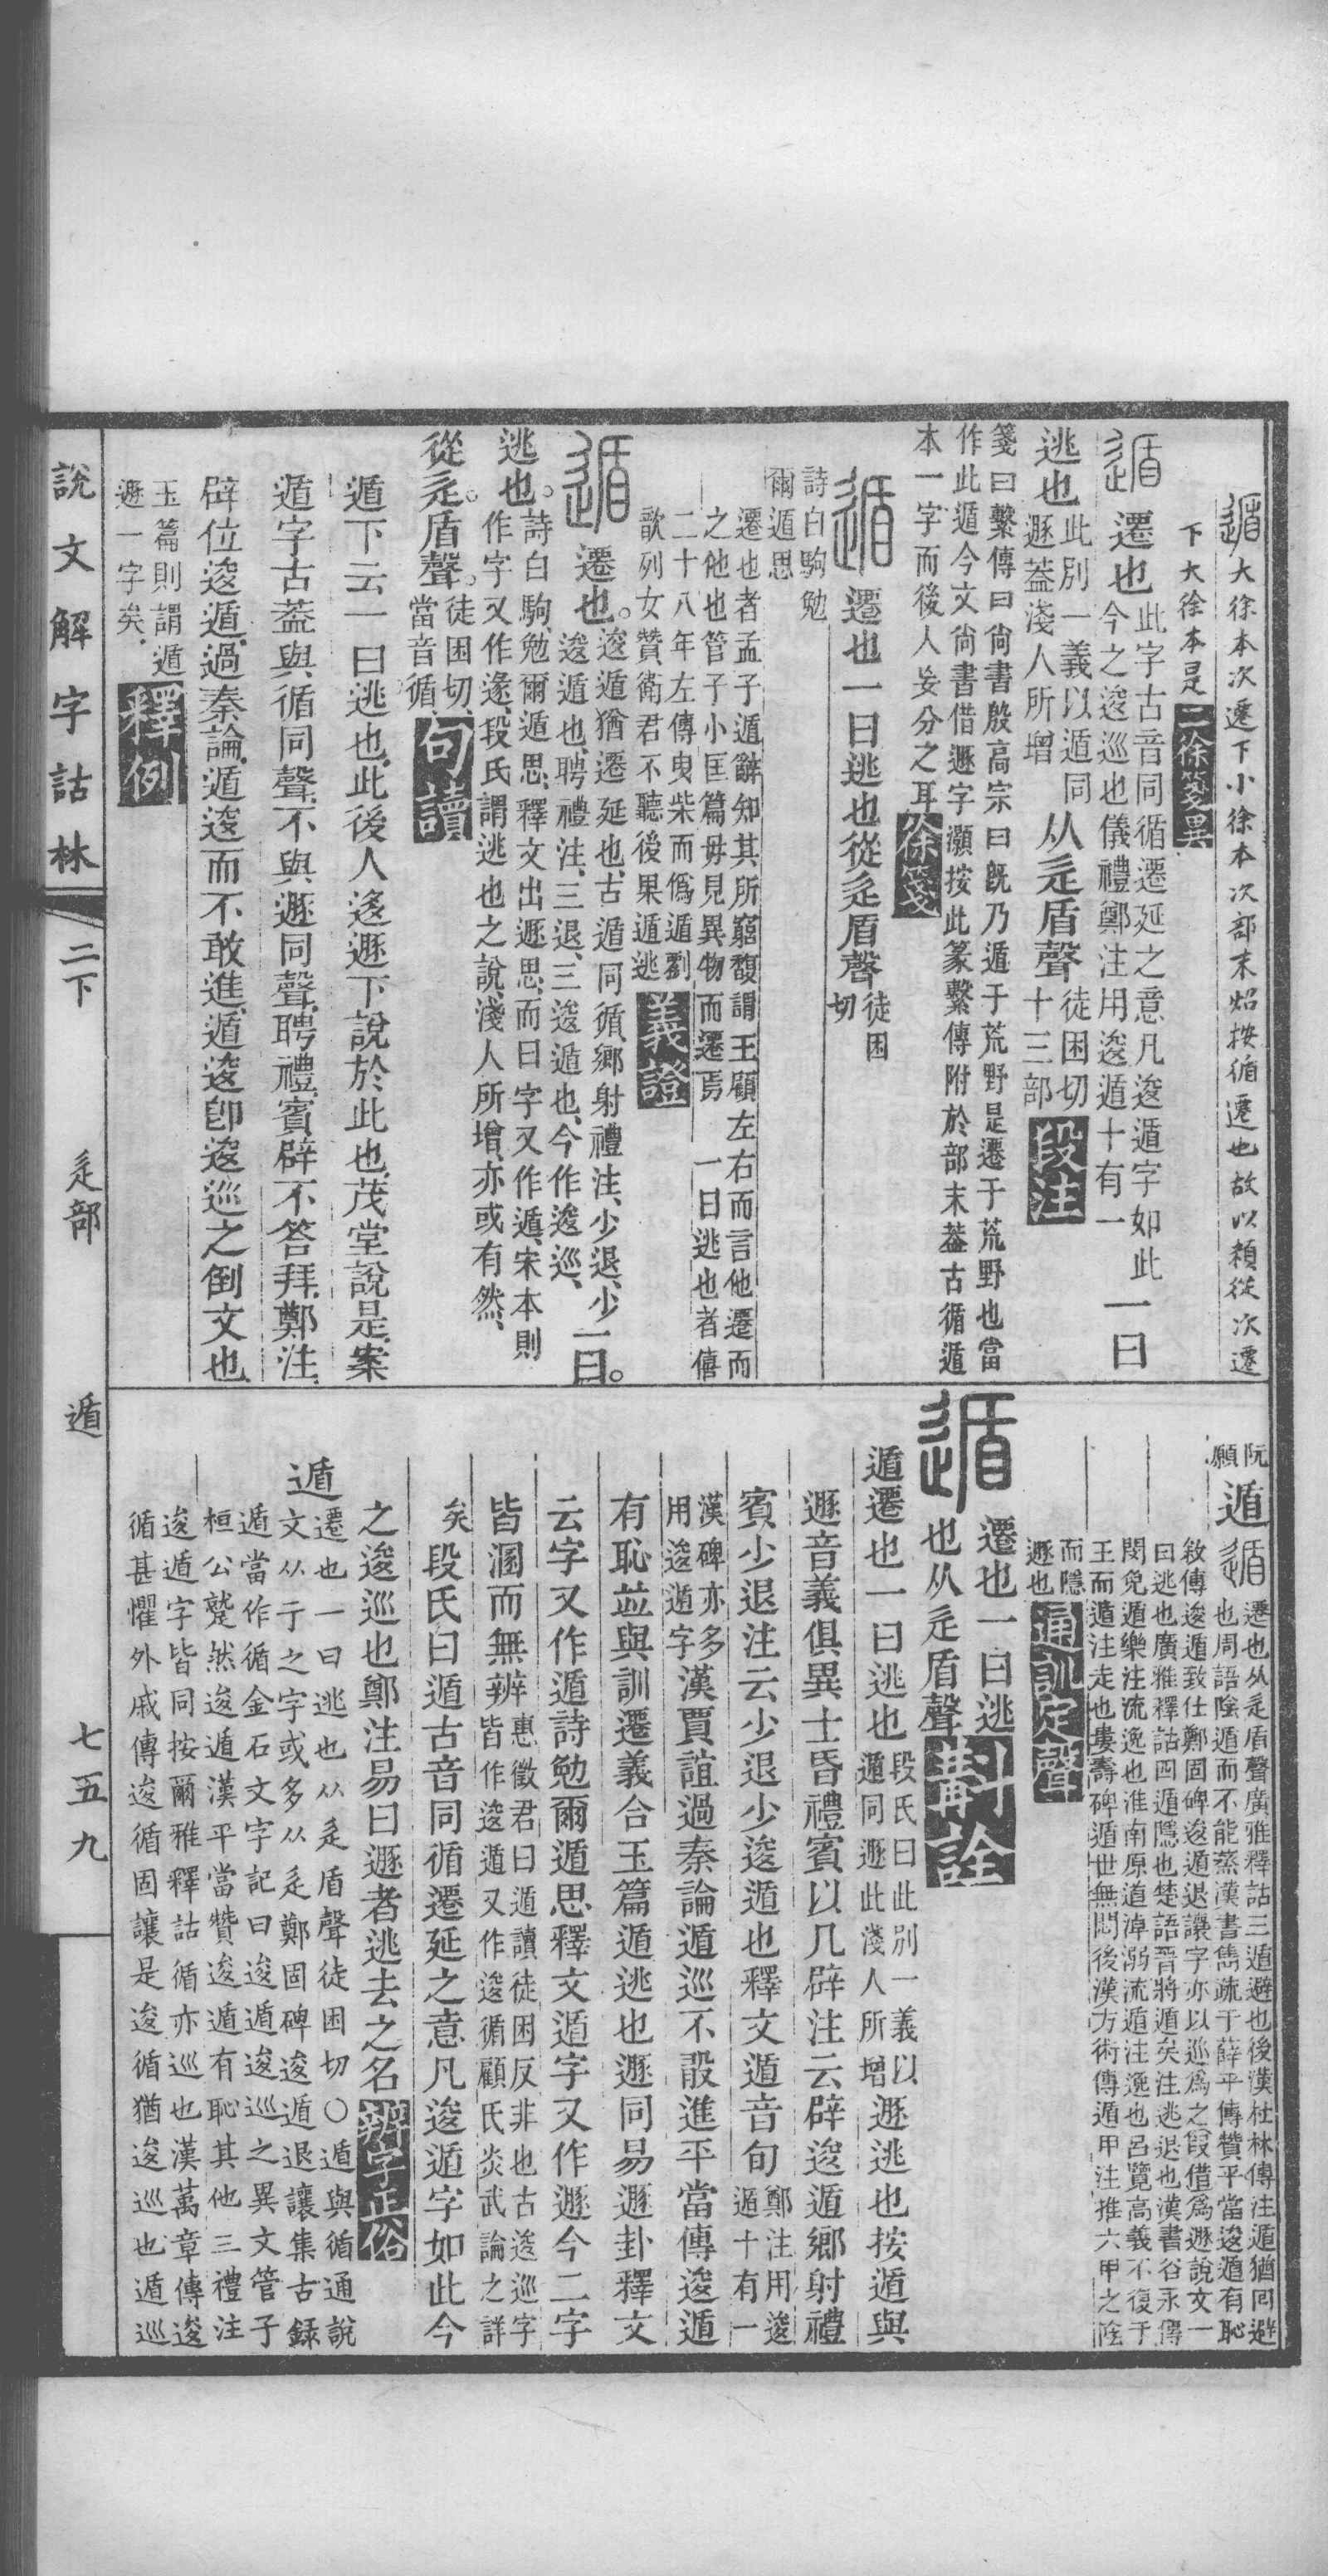 遁大徐本次遷下小徐本次部末炤按循遷也故以類從次遷
下大徐本是二徐箋異
遁遷也此字古音同循遷延之意凡逡遁字如此
今之逡巡也儀禮鄭注用逡遁十有一一曰
逃也此別一義以遁同
遯葢淺人所增从辵盾聲徒困切
十三部段注
箋曰繫傳曰尙書殷高宗曰旣乃遁于荒野是遷于荒野也當
作此遁今文尙書借遯字灝按此篆繫傳附於部末葢古循遁
本一字而後人妄分之耳徐箋
遁遷也一曰逃也從辵盾聲徒困
切
詩白駒勉
爾遁思
遷也者孟子遁辭知其所窮馥謂王顧左右而言他遷而
之他也管子小匡篇毋見異物而遷焉一曰逃也者僖
二十八年左傳曳柴而僞遁劉
歆列女贊衛君不聽後果遁逃義證
遁遷也。逡遁猶遷延也、古遁同循、鄉射禮注、少退、少
逡遁也、聘禮注、三退、三逡遁也、今作逡巡、一曰。
逃也。詩白駒、勉爾遁思、釋文出遯思、而曰字又作遁、宋本則
作字又作遂、段氏謂逃也之說、淺人所增、亦或有然、
從辵。盾聲。徒困切、
當音循句讀
遁下云一曰逃也、此後人迻遯下說於此也、茂堂說是、案
遁字古葢與循同聲、不與遯同聲、聘禮、賓辟不答拜、鄭注、
辟位逡遁、過秦論、遁逡而不敢進、遁逡卽逡巡之倒文也、
玉篇則謂遁
遯一字矣、釋例
阮
願遁遁遷也从辵盾聲廣雅釋詁三遁避也後漢杜林傳注遁猶回避
也周語陰遁而不能蒸漢書雋疏于薛平傳贊平當逡遁有恥
敘傳逡遁致仕鄭固碑逡遁退讓字亦以巡爲之叚借爲遯說文一
曰逃也廣雅釋詁四遁隱也楚語晉將遁矣注逃退也漢書谷永傳
閔免遁樂注流遁也淮南原道淖溺流遁注逸也呂覽高義不復于
王而遁注走也婁壽碑遁世無悶後漢方術傳遁甲注推六甲之陰
而隱
遯也通訓定聲
遁遷也一曰逃
也从辵盾聲斠詮
遁遷也一曰逃也段氏曰此別一義以
遁同遯此淺人所增遯逃也按遁與
遯音義俱異士昏禮賓以几辟注云辟逡遁鄉射禮
賓少退注云少退少逡遁也釋文遁音旬鄭注用逡
遁十有一
漢碑亦多
用逡遁字漢賈誼過秦論遁巡不敢進平當傳逡遁
有恥並與訓遷義合玉篇遁逃也遯同易遯卦釋文
云字又作遁詩勉爾遁思釋文遁字又作遯今二字
皆溷而無辨惠徵君曰遁讀徒困反非也古逡巡字
皆作逡遁又作逡循顧氏炎武論之詳
矣段氏曰遁古音同循遷延之意凡逡遁字如此今
之逡巡也鄭注易曰遯者逃去之名辨字正俗
遁遷也一曰逃也从辵盾聲徒困切○遁與循通說
文从亍之字或多从辵鄭固碑逡遁退讓集古錄
遁當作循金石文字記曰逡遁逡巡之異文管子
桓公蹵然逡遁漢平當贊逡遁有恥其他三禮注
逡遁字皆同按爾雅釋詁循亦巡也漢萬章傳逡
循甚懼外戚傳逡循固讓是逡循猶逡巡也遁巡
說文解字詁林 二下 辵部 遁 七五九